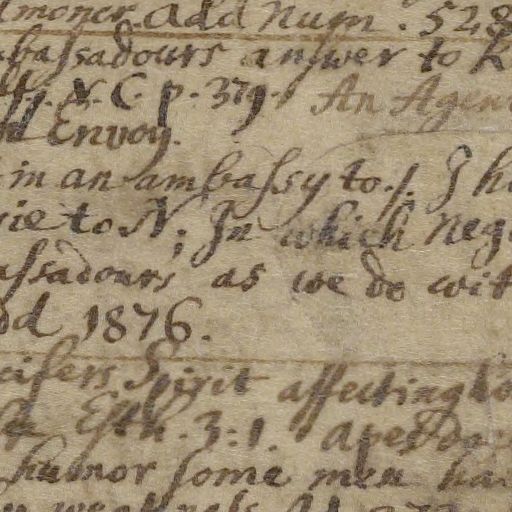 lmoner. Add Num. 528
bassadours answer to K
N. C. p. 379. An Agent
Envoy.
in an ambassy to. s. I h
to N; In which Neg
assadours as we do wit
dd 1876.
cifers Spirit affecting to
Esth. 3:1. a
humor some men ha